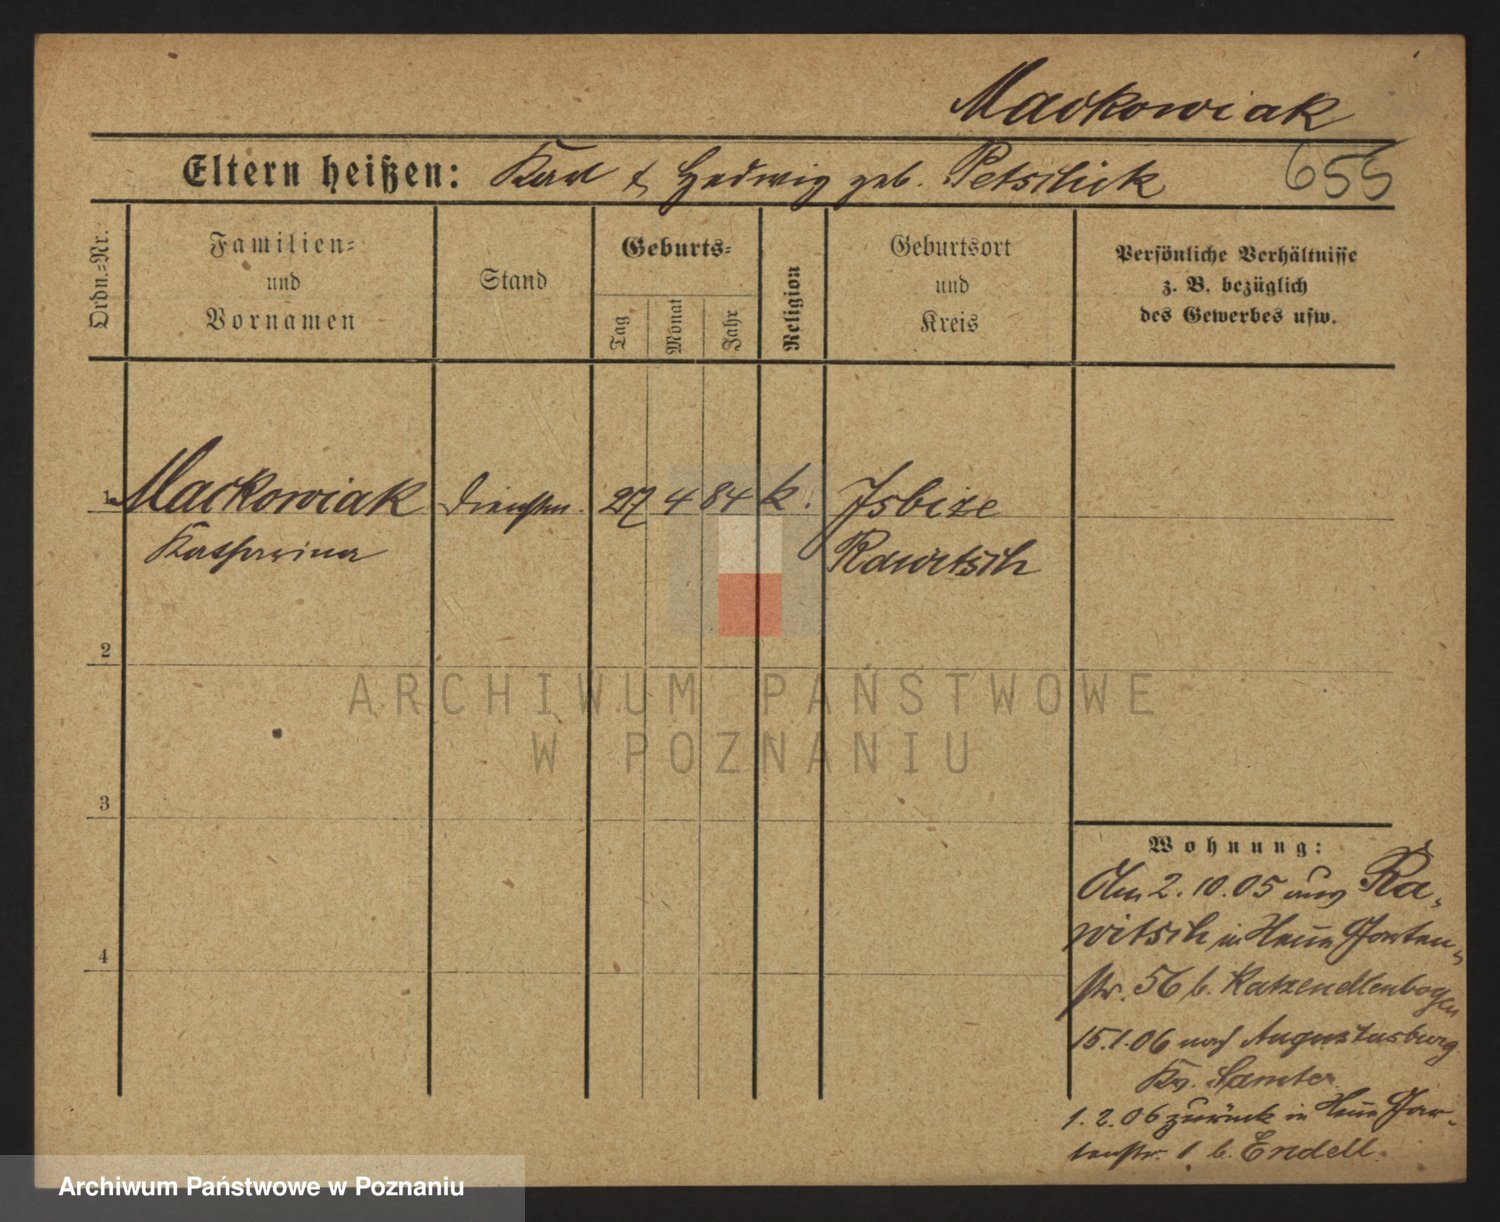 Mackowiak
Eltern heißen: Karl & Hedwig geb. Petschick
655
Ordn.=Nr.
Familien=
und
Vornamen
Stand
Geburts=
Tag
Monat
Jahr
Religion
Geburtsort
und
Kreis
Persönliche Verhältnisse
z. B. bezüglich
des Gewerbes usw.
1 Mackowiak Dienstm. 27 4 84 k. Isbize
Katharina Rawitsch
2
3
4
ARCHIWUM PAŃSTWOWE
W POZNANIU
Wohnung:
Am 2.10.05 aus Ra-
witsch in Neue Garten-
str. 56 b. Katzenellenbogen
15.1.06 nach Augustusburg
Kr. Samter
1.2.06 zurück in Neue Gar-
tenstr. 1 b. Endell.
Archiwum Państwowe w Poznaniu